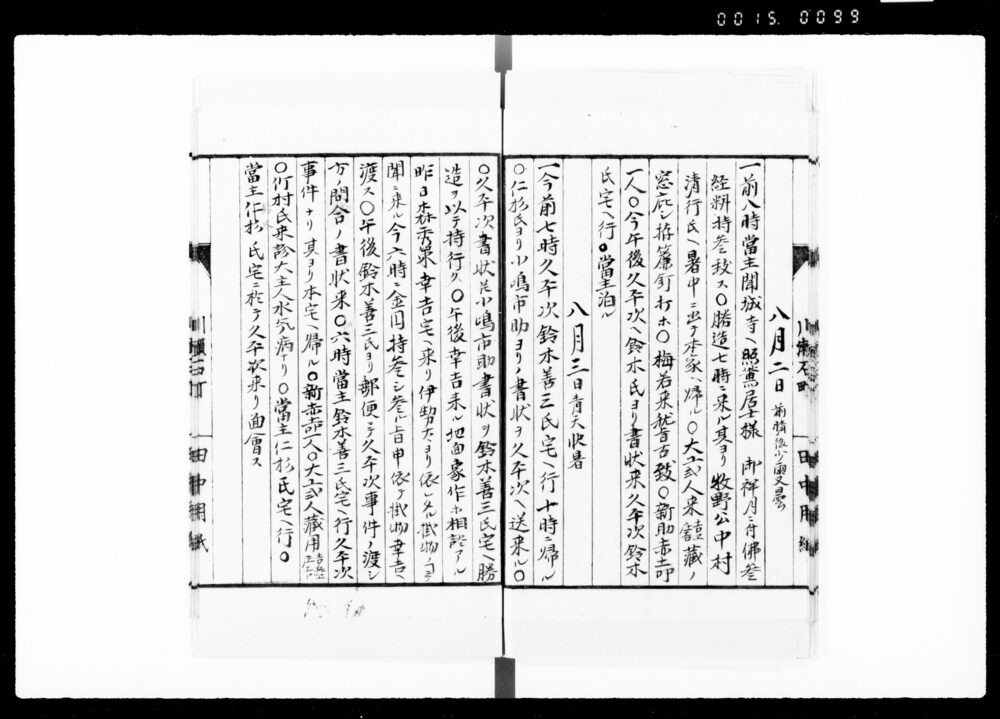 0015 0099
八月二日 前晴後少雨又曇
一前八時當主聞城寺ヘ照薫居士様御祥月ニ付佛参
経料持参致ス〇勝造七時ニ来ル其ヨリ牧野公中村
清行氏ヘ暑中ニ出テ本家ヘ帰ル〇大工弐人来 藏ノ
窓庇シ 簾釘打ホ〇梅若来 古致〇新助赤壽
一人〇今午後久平次ヘ鈴木氏ヨリ書状来久平次鈴木
氏宅ヘ行〇當主泊ル
八月三日青天快暑
一今前七時久平次鈴木善三氏宅ヘ行十時ニ帰ル
〇仁杉氏ヨリ小嶋市助ヨリノ書状ヲ久平次ヘ送来ル〇
〇久平次書状先小嶋市助書状ヲ鈴木善三氏宅ヘ勝
造ヲ以テ持行ク〇午後幸吉来ル地面家作ホ相談アル
昨日森秀策幸吉宅ヘ来リ伊勢太ヨリ依レタル掛物ノ
聞ニ来ル今六時ニ金円持参シ参ル旨申依テ掛物幸吉ヘ
渡ス〇午後鈴木善三氏ヨリ郵便ニテ久平次事件ノ渡シ
方ノ問合ノ書状来〇六時當主鈴木善三氏宅ヘ行久平次
事件ナリ其ヨリ本宅ヘ帰ル〇新赤壽一人〇大工弐人藏用
〇竹村氏来診大主人水気病ナリ〇當主仁杉氏宅ヘ行〇
當主仁杉氏宅ニ於テ久平次来リ面會ス
田中用紙